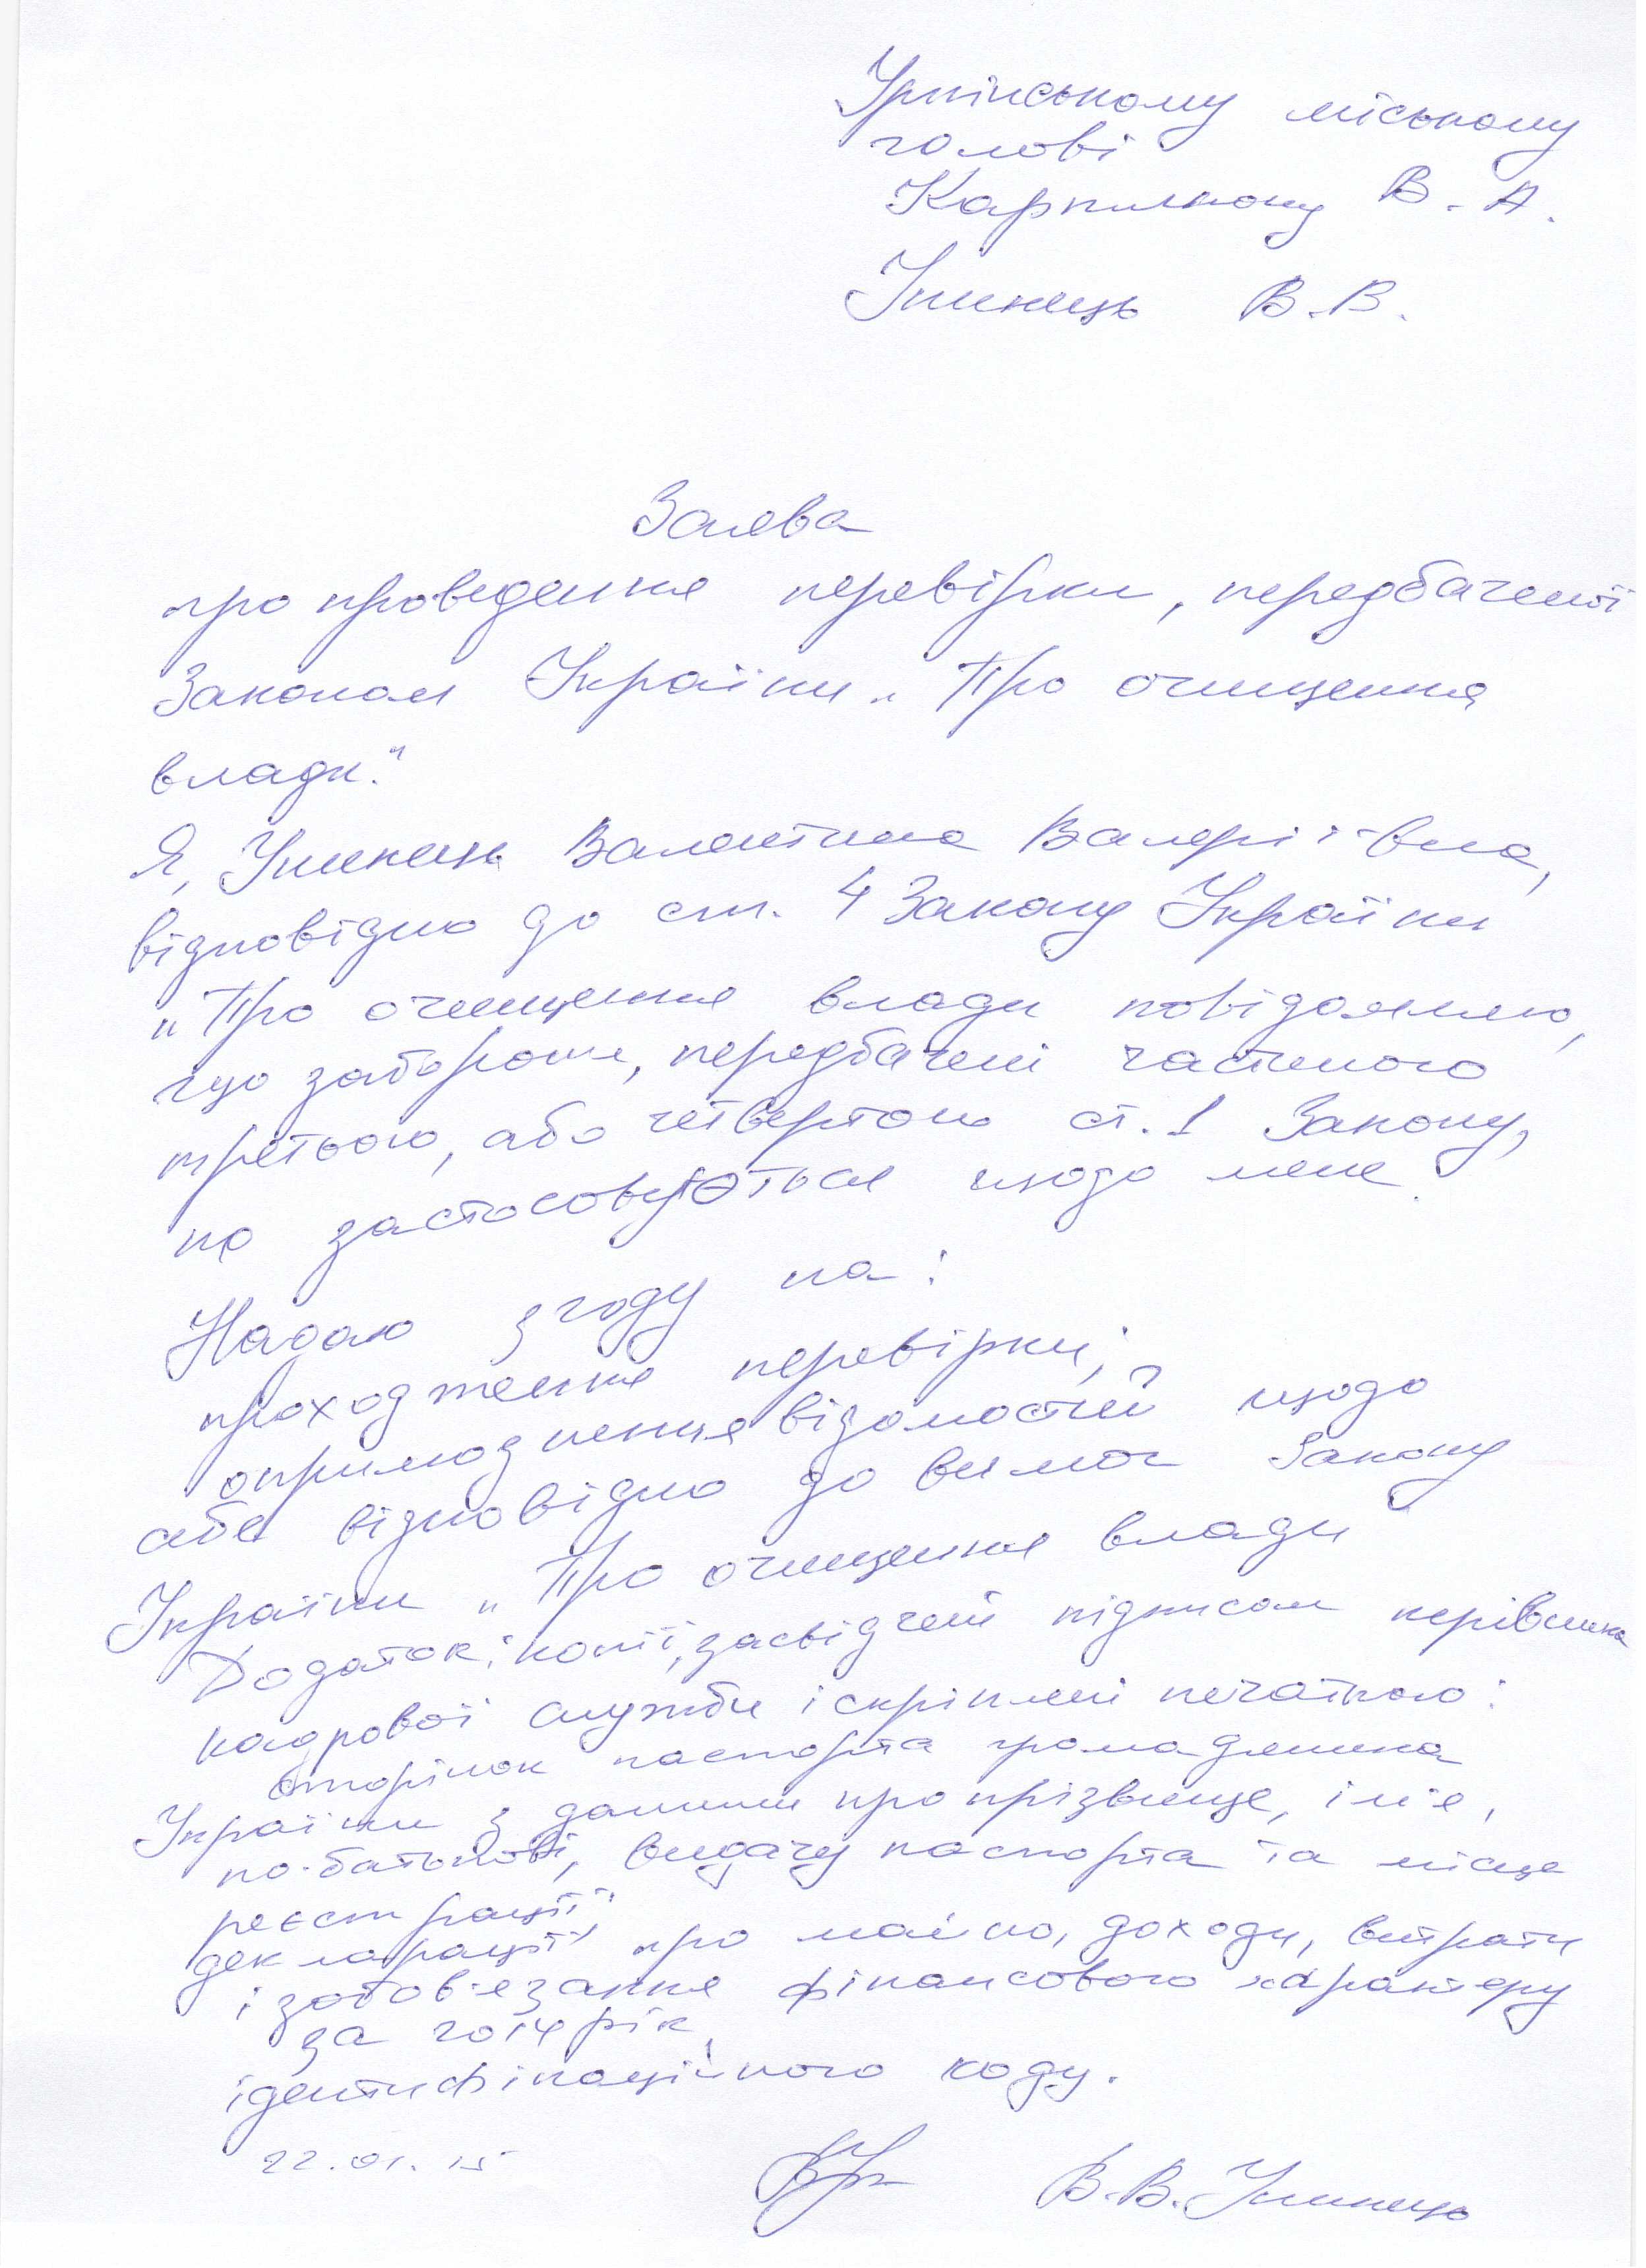 Ірпінському міському
голові
Карплюку В. А.
В.В.
Заява
про проведення перевірки, передбаченої
Законом України „Про очищення
влади."
Я, Валентина Валеріївна,
відповідно до ст. 4 Закону України
„Про очищення влади повідомляю,
що заборони, передбачені частиною
третьою, або четвертою ст. 1 Закону,
не застосовуються щодо мене.
Надаю згоду на:
проходження перевірки;
оприлюднення відомостей щодо
себе відповідно до вимог Закону
України „Про очищення влади"
Додаток: копії, засвідчені підписом керівника
кадрової служби і скріплені печаткою:
сторінок паспорта громадянина
України з даними про прізвище, ім'я,
по-батькові, видачу паспорта та місце
реєстрації;
декларації про майно, доходи, витрати
і зобов'язання фінансового характеру
за 2014 рік,
ідентифікаційного коду.
22.01.15
В.В.